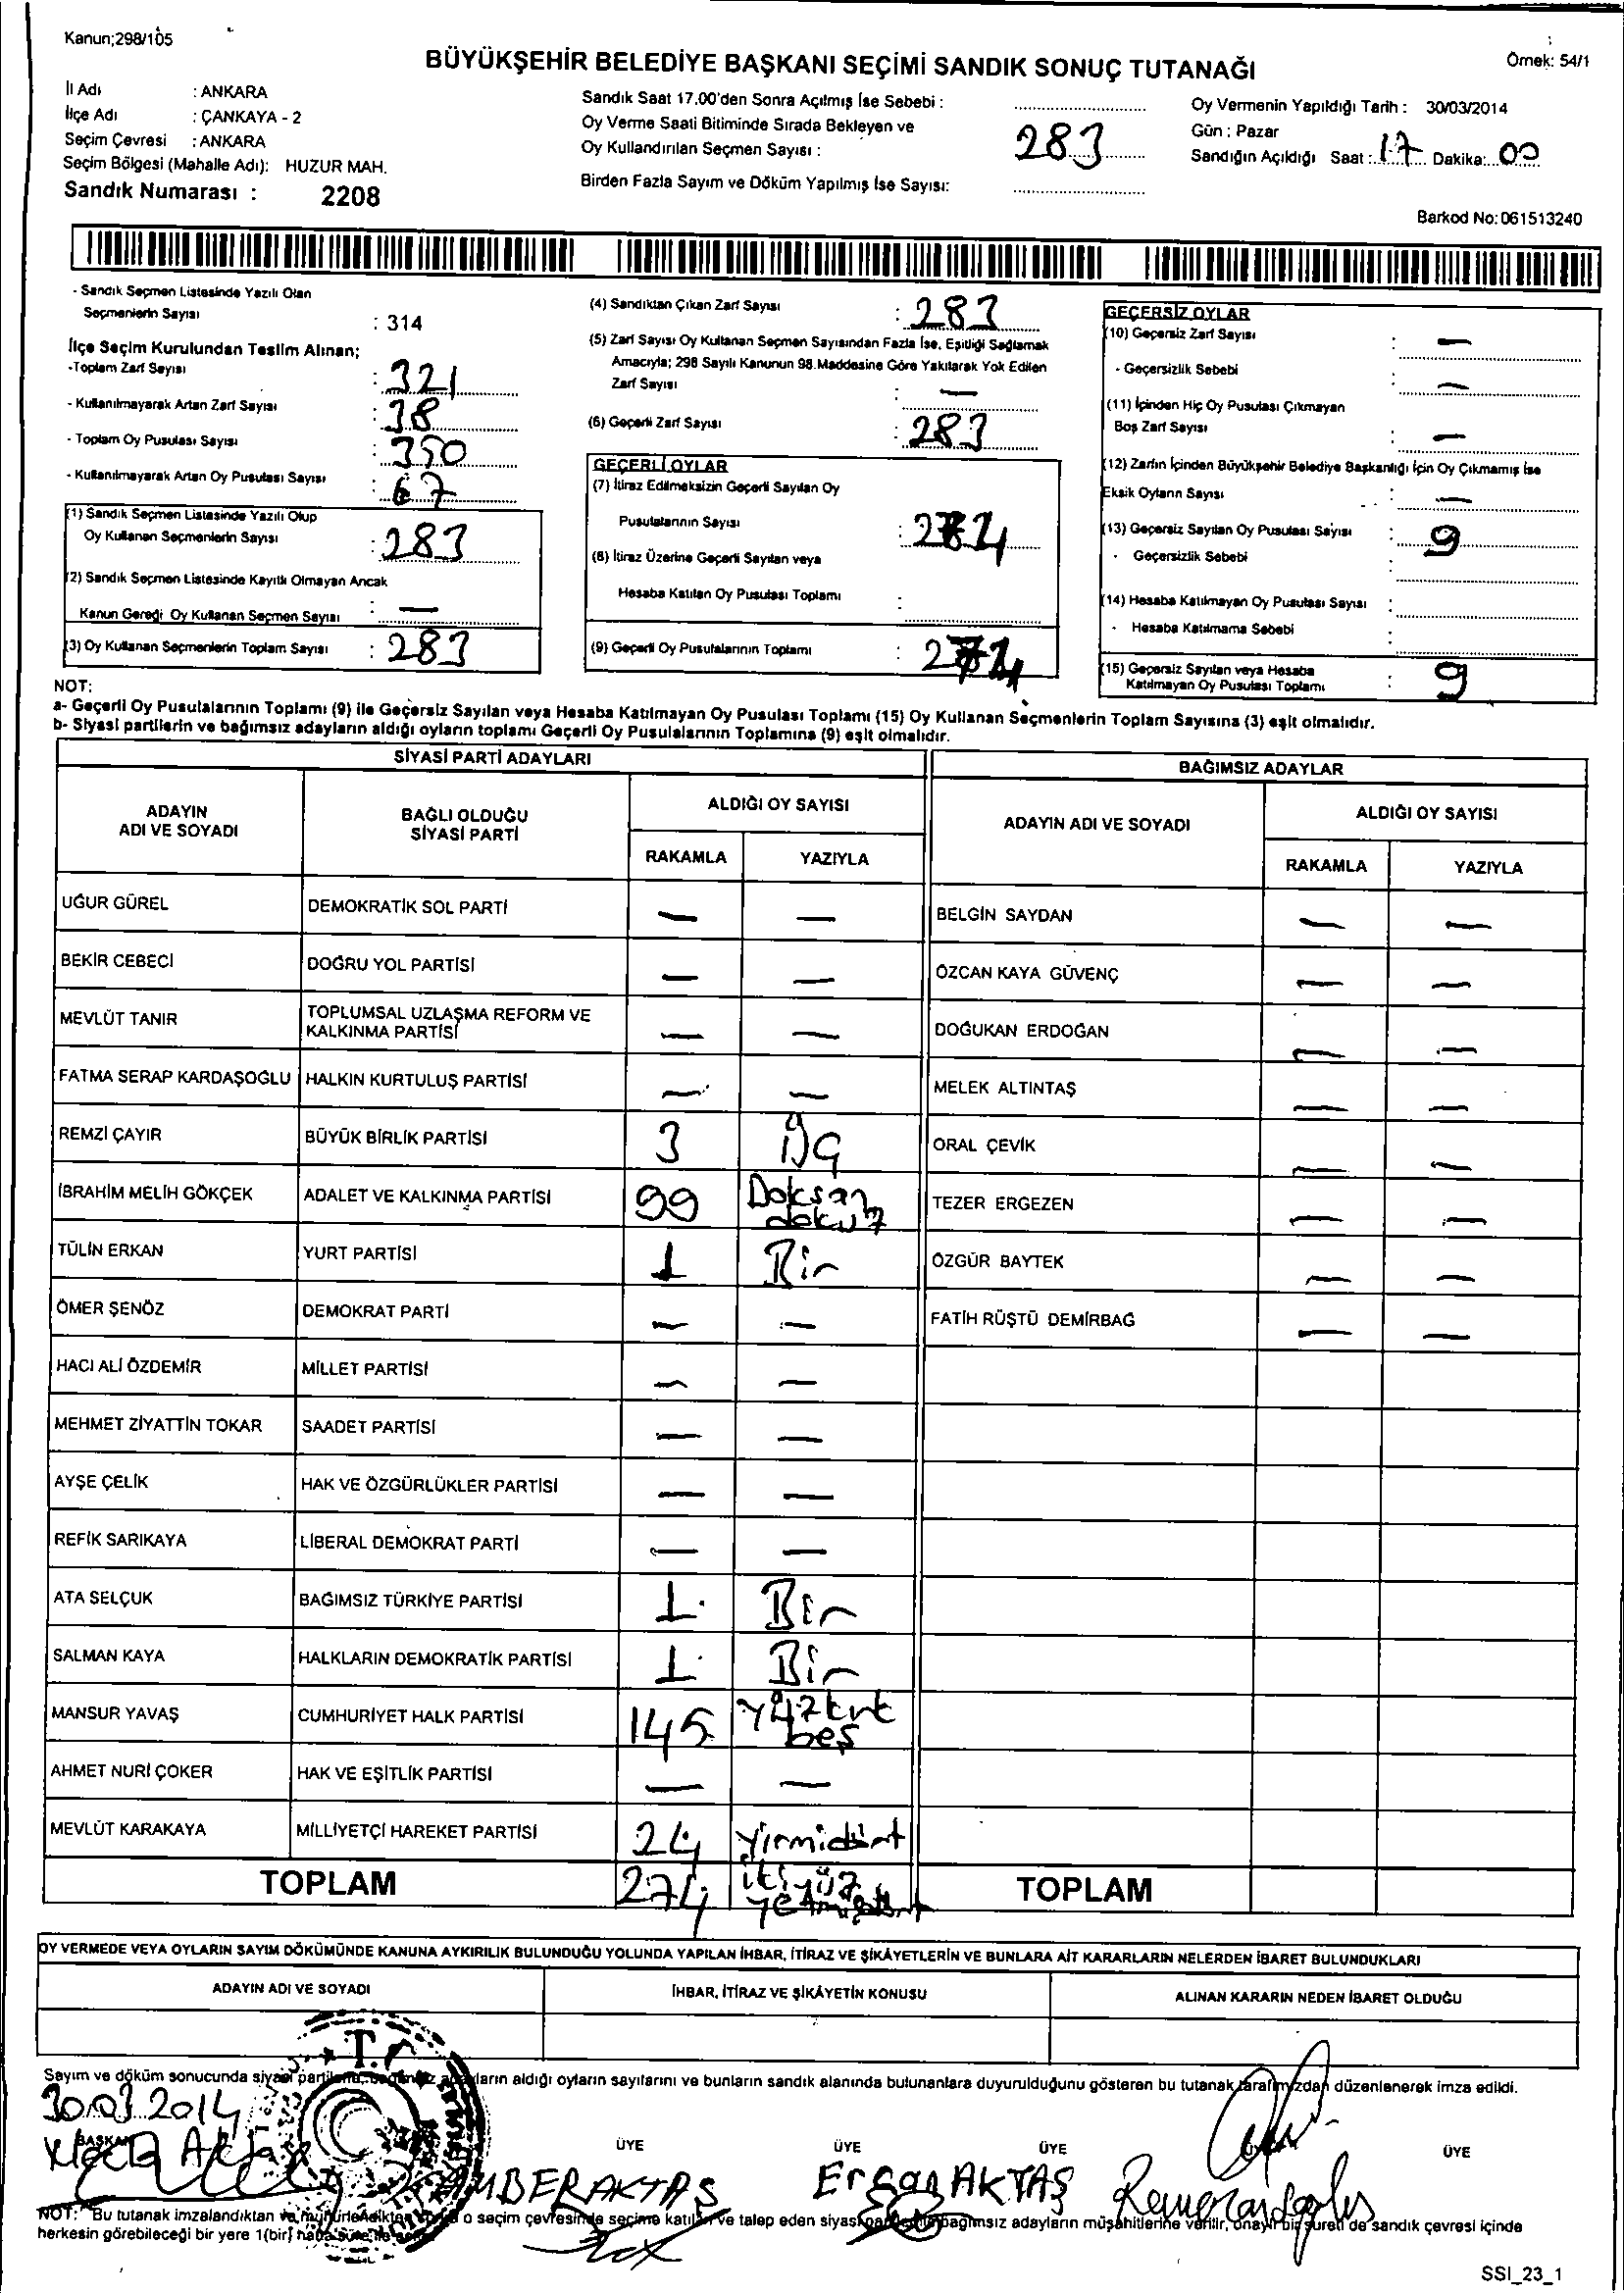 Kanun;298/105
BÜYÜKŞEHİR BELEDİYE BAŞKANI SEÇİMİ SANDIK SONUÇ TUTANAĞI
Örnek: 54/1
İl Adı : ANKARA
İlçe Adı : ÇANKAYA - 2
Seçim Çevresi : ANKARA
Seçim Bölgesi (Mahalle Adı): HUZUR MAH.
Sandık Numarası : 2208
Sandık Saat 17.00'den Sonra Açılmış İse Sebebi :
Oy Verme Saati Bitiminde Sırada Bekleyen ve
Oy Kullandırılan Seçmen Sayısı : 283
Birden Fazla Sayım ve Döküm Yapılmış İse Sayısı:
Oy Vermenin Yapıldığı Tarih : 30/03/2014
Gün : Pazar
Sandığın Açıldığı Saat : 17 Dakika: 00
Barkod No: 061513240
- Sandık Seçmen Listesinde Yazılı Olan
Seçmenlerin Sayısı : 314
İlçe Seçim Kurulundan Teslim Alınan;
-Toplam Zarf Sayısı : 321
- Kullanılmayarak Artan Zarf Sayısı : 38
- Toplam Oy Pusulası Sayısı : 350
- Kullanılmayarak Artan Oy Pusulası Sayısı : 67
(1) Sandık Seçmen Listesinde Yazılı Olup
Oy Kullanan Seçmenlerin Sayısı : 283
(2) Sandık Seçmen Listesinde Kayıtlı Olmayan Ancak
Kanun Gereği Oy Kullanan Seçmen Sayısı : —
(3) Oy Kullanan Seçmenlerin Toplam Sayısı : 283
(4) Sandıktan Çıkan Zarf Sayısı : 283
(5) Zarf Sayısı Oy Kullanan Seçmen Sayısından Fazla İse, Eşitliği Sağlamak
Amacıyla; 298 Sayılı Kanunun 98.Maddesine Göre Yakılarak Yok Edilen
Zarf Sayısı : —
(6) Geçerli Zarf Sayısı : 283
GEÇERLİ OYLAR
(7) İtiraz Edilmeksizin Geçerli Sayılan Oy
Pusulalarının Sayısı : 274
(8) İtiraz Üzerine Geçerli Sayılan veya
Hesaba Katılan Oy Pusulası Toplamı :
(9) Geçerli Oy Pusulalarının Toplamı : 274
GEÇERSİZ OYLAR
(10) Geçersiz Zarf Sayısı : —
- Geçersizlik Sebebi : —
(11) İçinden Hiç Oy Pusulası Çıkmayan
Boş Zarf Sayısı : —
(12) Zarfın İçinden Büyükşehir Belediye Başkanlığı İçin Oy Çıkmamış İse
Eksik Oyların Sayısı : —
(13) Geçersiz Sayılan Oy Pusulası Sayısı : 9
- Geçersizlik Sebebi :
(14) Hesaba Katılmayan Oy Pusulası Sayısı :
- Hesaba Katılmama Sebebi :
(15) Geçersiz Sayılan veya Hesaba
Katılmayan Oy Pusulası Toplamı : 9
NOT:
a- Geçerli Oy Pusulalarının Toplamı (9) ile Geçersiz Sayılan veya Hesaba Katılmayan Oy Pusulası Toplamı (15) Oy Kullanan Seçmenlerin Toplam Sayısına (3) eşit olmalıdır.
b- Siyasi partilerin ve bağımsız adayların aldığı oyların toplamı Geçerli Oy Pusulalarının Toplamına (9) eşit olmalıdır.
SİYASİ PARTİ ADAYLARI
ADAYIN ADI VE SOYADI BAĞLI OLDUĞU SİYASİ PARTİ ALDIĞI OY SAYISI
RAKAMLA YAZIYLA
UĞUR GÜREL DEMOKRATİK SOL PARTİ — —
BEKİR CEBECİ DOĞRU YOL PARTİSİ — —
MEVLÜT TANIR TOPLUMSAL UZLAŞMA REFORM VE KALKINMA PARTİSİ — —
FATMA SERAP KARDAŞOĞLU HALKIN KURTULUŞ PARTİSİ — —
REMZİ ÇAYIR BÜYÜK BİRLİK PARTİSİ 3 üç
İBRAHİM MELİH GÖKÇEK ADALET VE KALKINMA PARTİSİ 99 Doksan dokuz
TÜLİN ERKAN YURT PARTİSİ 1 Bir
ÖMER ŞENÖZ DEMOKRAT PARTİ — —
HACI ALİ ÖZDEMİR MİLLET PARTİSİ — —
MEHMET ZİYATTİN TOKAR SAADET PARTİSİ — —
AYŞE ÇELİK HAK VE ÖZGÜRLÜKLER PARTİSİ — —
REFİK SARIKAYA LİBERAL DEMOKRAT PARTİ — —
ATA SELÇUK BAĞIMSIZ TÜRKİYE PARTİSİ 1 Bir
SALMAN KAYA HALKLARIN DEMOKRATİK PARTİSİ 1 Bir
MANSUR YAVAŞ CUMHURİYET HALK PARTİSİ 145 yüzkrk beş
AHMET NURİ ÇOKER HAK VE EŞİTLİK PARTİSİ — —
MEVLÜT KARAKAYA MİLLİYETÇİ HAREKET PARTİSİ 24 yirmidört
TOPLAM 274 ikiyüz yetmişdört
BAĞIMSIZ ADAYLAR
ADAYIN ADI VE SOYADI ALDIĞI OY SAYISI
RAKAMLA YAZIYLA
BELGİN SAYDAN — —
ÖZCAN KAYA GÜVENÇ — —
DOĞUKAN ERDOĞAN — —
MELEK ALTINTAŞ — —
ORAL ÇEVİK — —
TEZER ERGEZEN — —
ÖZGÜR BAYTEK — —
FATİH RÜŞTÜ DEMİRBAĞ — —
TOPLAM
OY VERMEDE VEYA OYLARIN SAYIM DÖKÜMÜNDE KANUNA AYKIRILIK BULUNDUĞU YOLUNDA YAPILAN İHBAR, İTİRAZ VE ŞİKÂYETLERİN VE BUNLARA AİT KARARLARIN NELERDEN İBARET BULUNDUKLARI
ADAYIN ADI VE SOYADI İHBAR, İTİRAZ VE ŞİKÂYETİN KONUSU ALINAN KARARIN NEDEN İBARET OLDUĞU
T.C.
Sayım ve döküm sonucunda siyasi partilerin, bağımsız adayların aldığı oyların sayılarını ve bunların sandık alanında bulunanlara duyurulduğunu gösteren bu tutanak tarafımızdan düzenlenerek imza edildi.
30.03.2014
BAŞKAN ÜYE ÜYE ÜYE ÜYE ÜYE
AKTAŞ Ercan AKTAŞ
NOT: Bu tutanak imzalandıktan ve mühürlendikten o seçim çevresinde seçime katılan ve talep eden siyasi bağımsız adayların müşahitlerine verilir, onaylı bir sureti de sandık çevresi içinde
herkesin görebileceği bir yere 1(bir) hafta süre ile
SSI_23_1